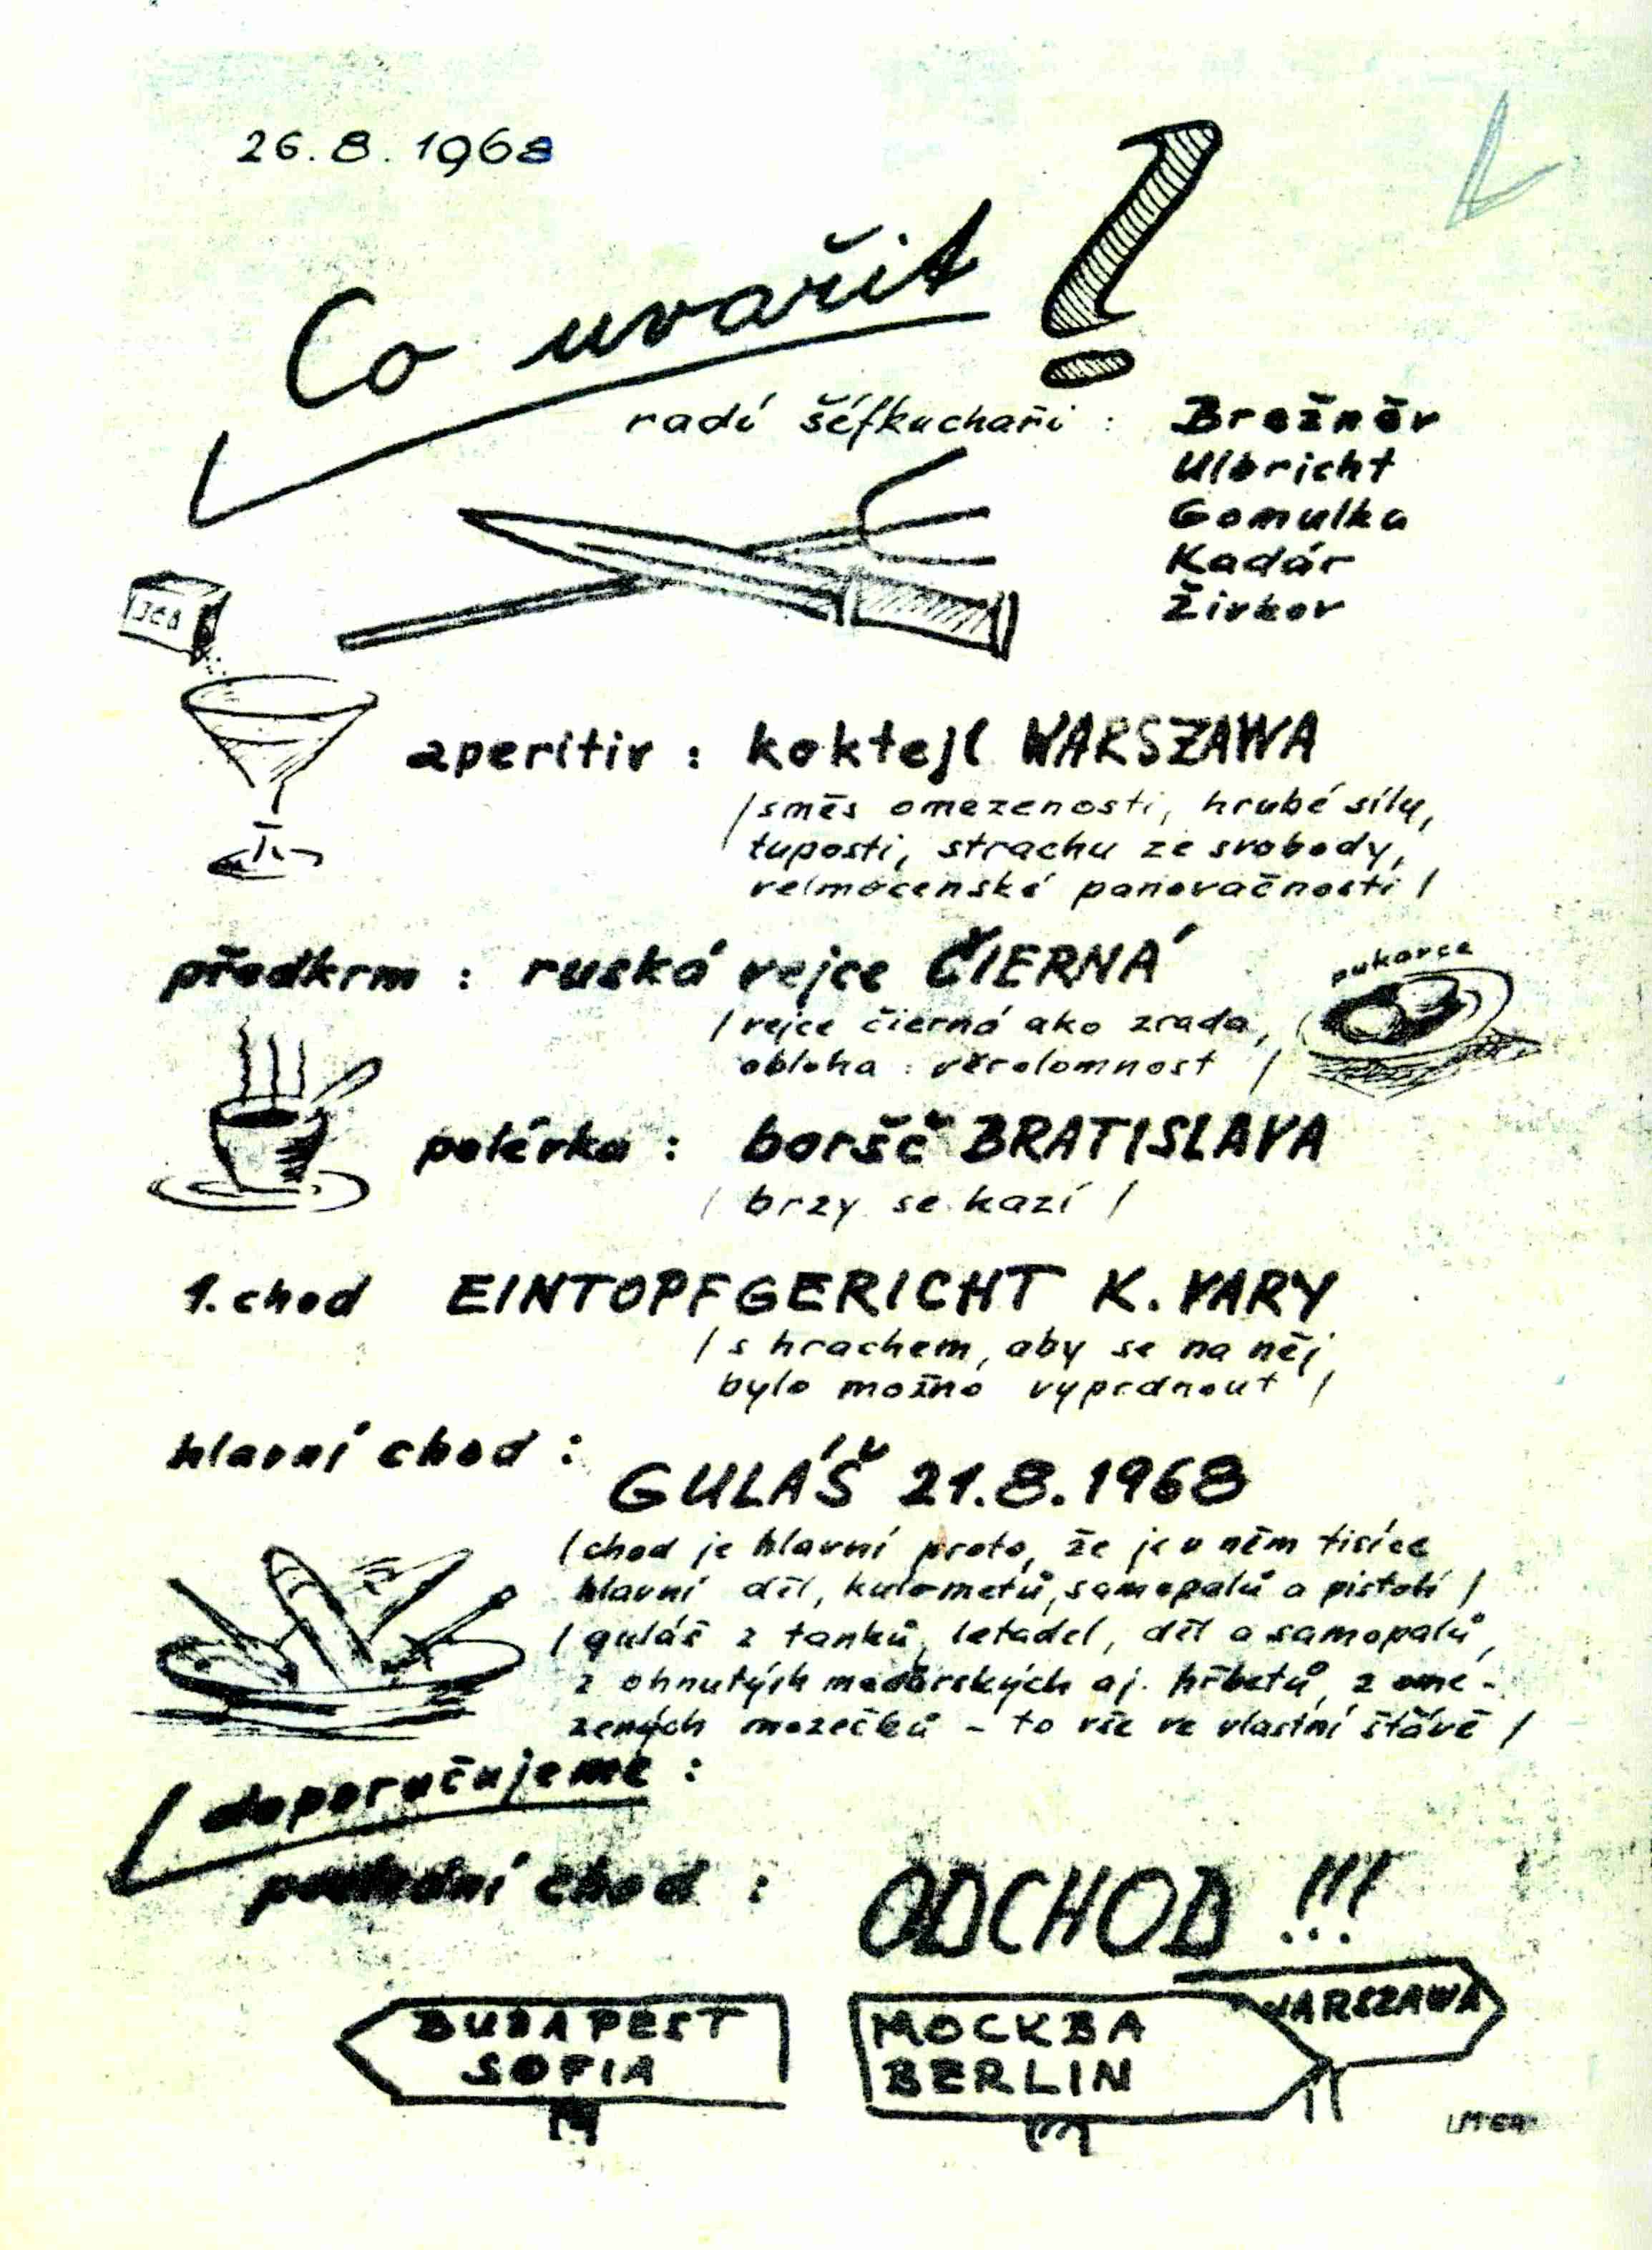 26.8.1968
Co uvařit?
radí šéfkuchaři : Brežněv
Ulbricht
Gomulka
Kadár
Živkov
Jed
aperitiv : koktejl WARSZAWA
/směs omezenosti, hrubé síly,
tuposti, strachu ze svobody,
velmocenské panovačnosti/
předkrm : ruská vejce ČIERNÁ
pukavce
/vejce čierná ako zrada,
obloha : věrolomnost /
polévka : boršč BRATISLAVA
/ brzy se kazí /
1. chod EINTOPFGERICHT K. VARY
/s hrachem, aby se na něj
bylo možno vyprdnout /
hlavní chod :
GULÁŠ 21.8.1968
/chod je hlavní proto, že je v něm tisíce
hlavní děl, kulometů, samopalů a pistolí /
/guláš z tanků, letadel, děl a samopalů,
z ohnutých maďarských aj. hřbetů, z ome-
zených mozečků - to vše ve vlastní šťávě /
doporučujeme :
poslední chod : ODCHOD !!!
BUDAPEST
SOFIA
MOCKBA
BERLIN
WARSZAWA